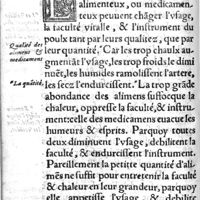 alimenteux, ou medicamen-
teux peuuent chãger l'vsage,
la faculté viralle, & l'instrument du
poulx tant par leurs qualitez, que par
leur quantité. "Car les trop chaulx au-
gmentẽt l'vsage, les trop froids le dimi
nuẽt, les humides ramolissent l'artere,
les secz l'endurcissent. "La trop grãde
abondance des alimens suffocque la
chaleur, oppresse la faculté, & instru-
ment: celle des medicamens euacue les
humeurs & esprits. Parquoy toutes
deux diminuent l'vsage, debilitent
la faculté, & endurcissent l'instrument.
Pareillement la petite quantité d'ali-
mẽs ne suffit pour entretenir la faculté
& chaleur en leur grandeur, parquoy
elle appetisse l'vsage, & debilite
Qualité des
alimens &
medicamens
"La quãtité.